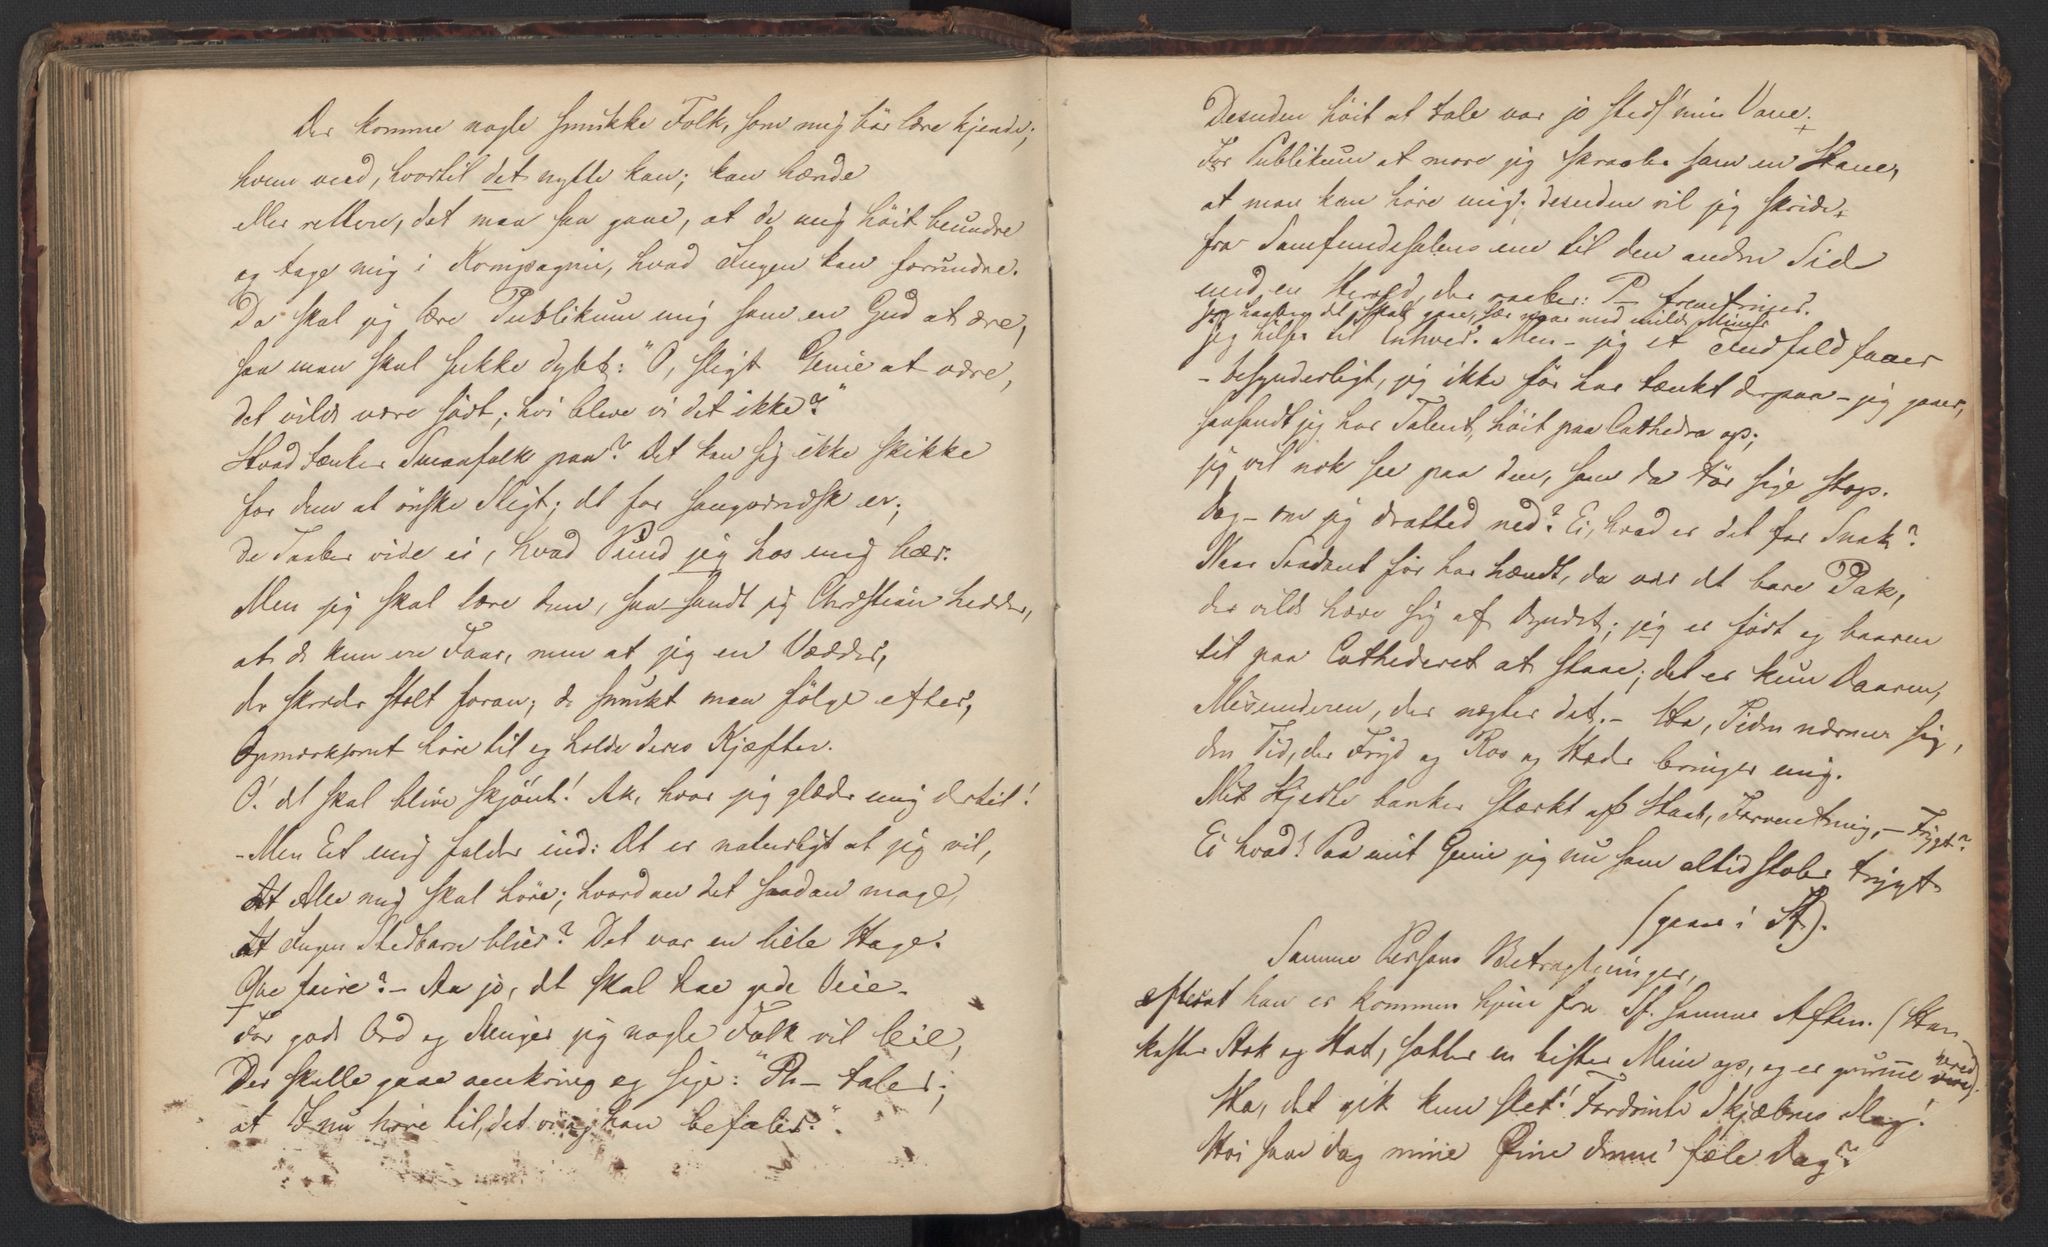 Der komme nogle smukke Folk, som mig bör lære kjende;
hvem veed, hvortil det nytte kan; kan hænde
eller rettere, det maa saa gaae, at de mig höit beundre
og tage mig i Kompagni, hvad Ingen kan forundre.
Da skal jeg lære Publikum mig som en Gud at ære,
saa man skal sukke dybt: "O, sligt Genie at være,
det vilde være södt; hvi bleve vi det ikke?"
Hvad tænker Smaafolk paa? Det kan sig ikke skikke
for dem at önske Sligt; det for
de Taaber vide ei, hvad Pund jeg hos mig bær.
Men jeg skal lære dem, saa sandt jeg Christian hedder,
at de kun ere Faar, men at jeg en Vædder,
der skrider stolt foran; de smukt maa fölge efter,
opmærksomt höre til og holde deres Kjæfter.
O! det skal blive skjönt! Ak, hvor jeg glæder mig dertil!
- Men Eet mig falder ind: Det er naturligt at jeg vil,
At Alle mig skal höre; hvordan det saadan mage,
At Ingen Stedbarn blier? Det var en lille Hage.
Que faire? - Aa jo, det skal hae gode Veie.
For gode Ord og Penge jeg nogle Folk vil leie,
Der skulle gaae omkring og sige: "Ph- taler;
at I nu höre til, det vist han befaler."
Desuden höit at tale var jo steds' min Vane.
For Publikum at more jeg skraaler som en Hane,
at man kan höre mig; desuden vil jeg skride
fra Samfundssalens ene til den anden Side
med en Herold, der raaber: P- fremtriner.
Jeg haaber det skal gaae, især naar med milde Miner
jeg hilser til Enhver. Men - jeg et Indfald faaer
- besynderligt, jeg ikke för har tænkt derpaa - jeg gaaer,
saasandt jeg har Talent, höit paa Cathedra op;
jeg vil nok see paa den, som da tör sige stop.
Dog - om jeg dratted ned? Ei, hvad er det for Snak?
Naar Saadant för har hændt, da var det bare Pak,
der vilde hæve sig af Dyndet; jeg er födt og baaren
til paa Cathederet at staae; det er kun Daaren,
Misunderen, der nægter det. - Ha, Tiden nærmer sig,
den Tid, der Fryd og Ros og Hæder bringer mig.
Mit Hjerte banker stærkt af Haab, Forventning, - Frygt?
Ei hvad! Paa mit Genie jeg nu som altid stoler trygt
(gaaer i St).
Samme Persons Betragtninger,
efterat han er kommen hjem fra St. samme Aften. (Han
kaster Stok og Hat, sætter en bister Mine op, og er grumme vred).
Ha, det gik kun slet! Fordömte Skjæbnes Mag!
Hvi saae dog mine Öine denne fæle Dag?